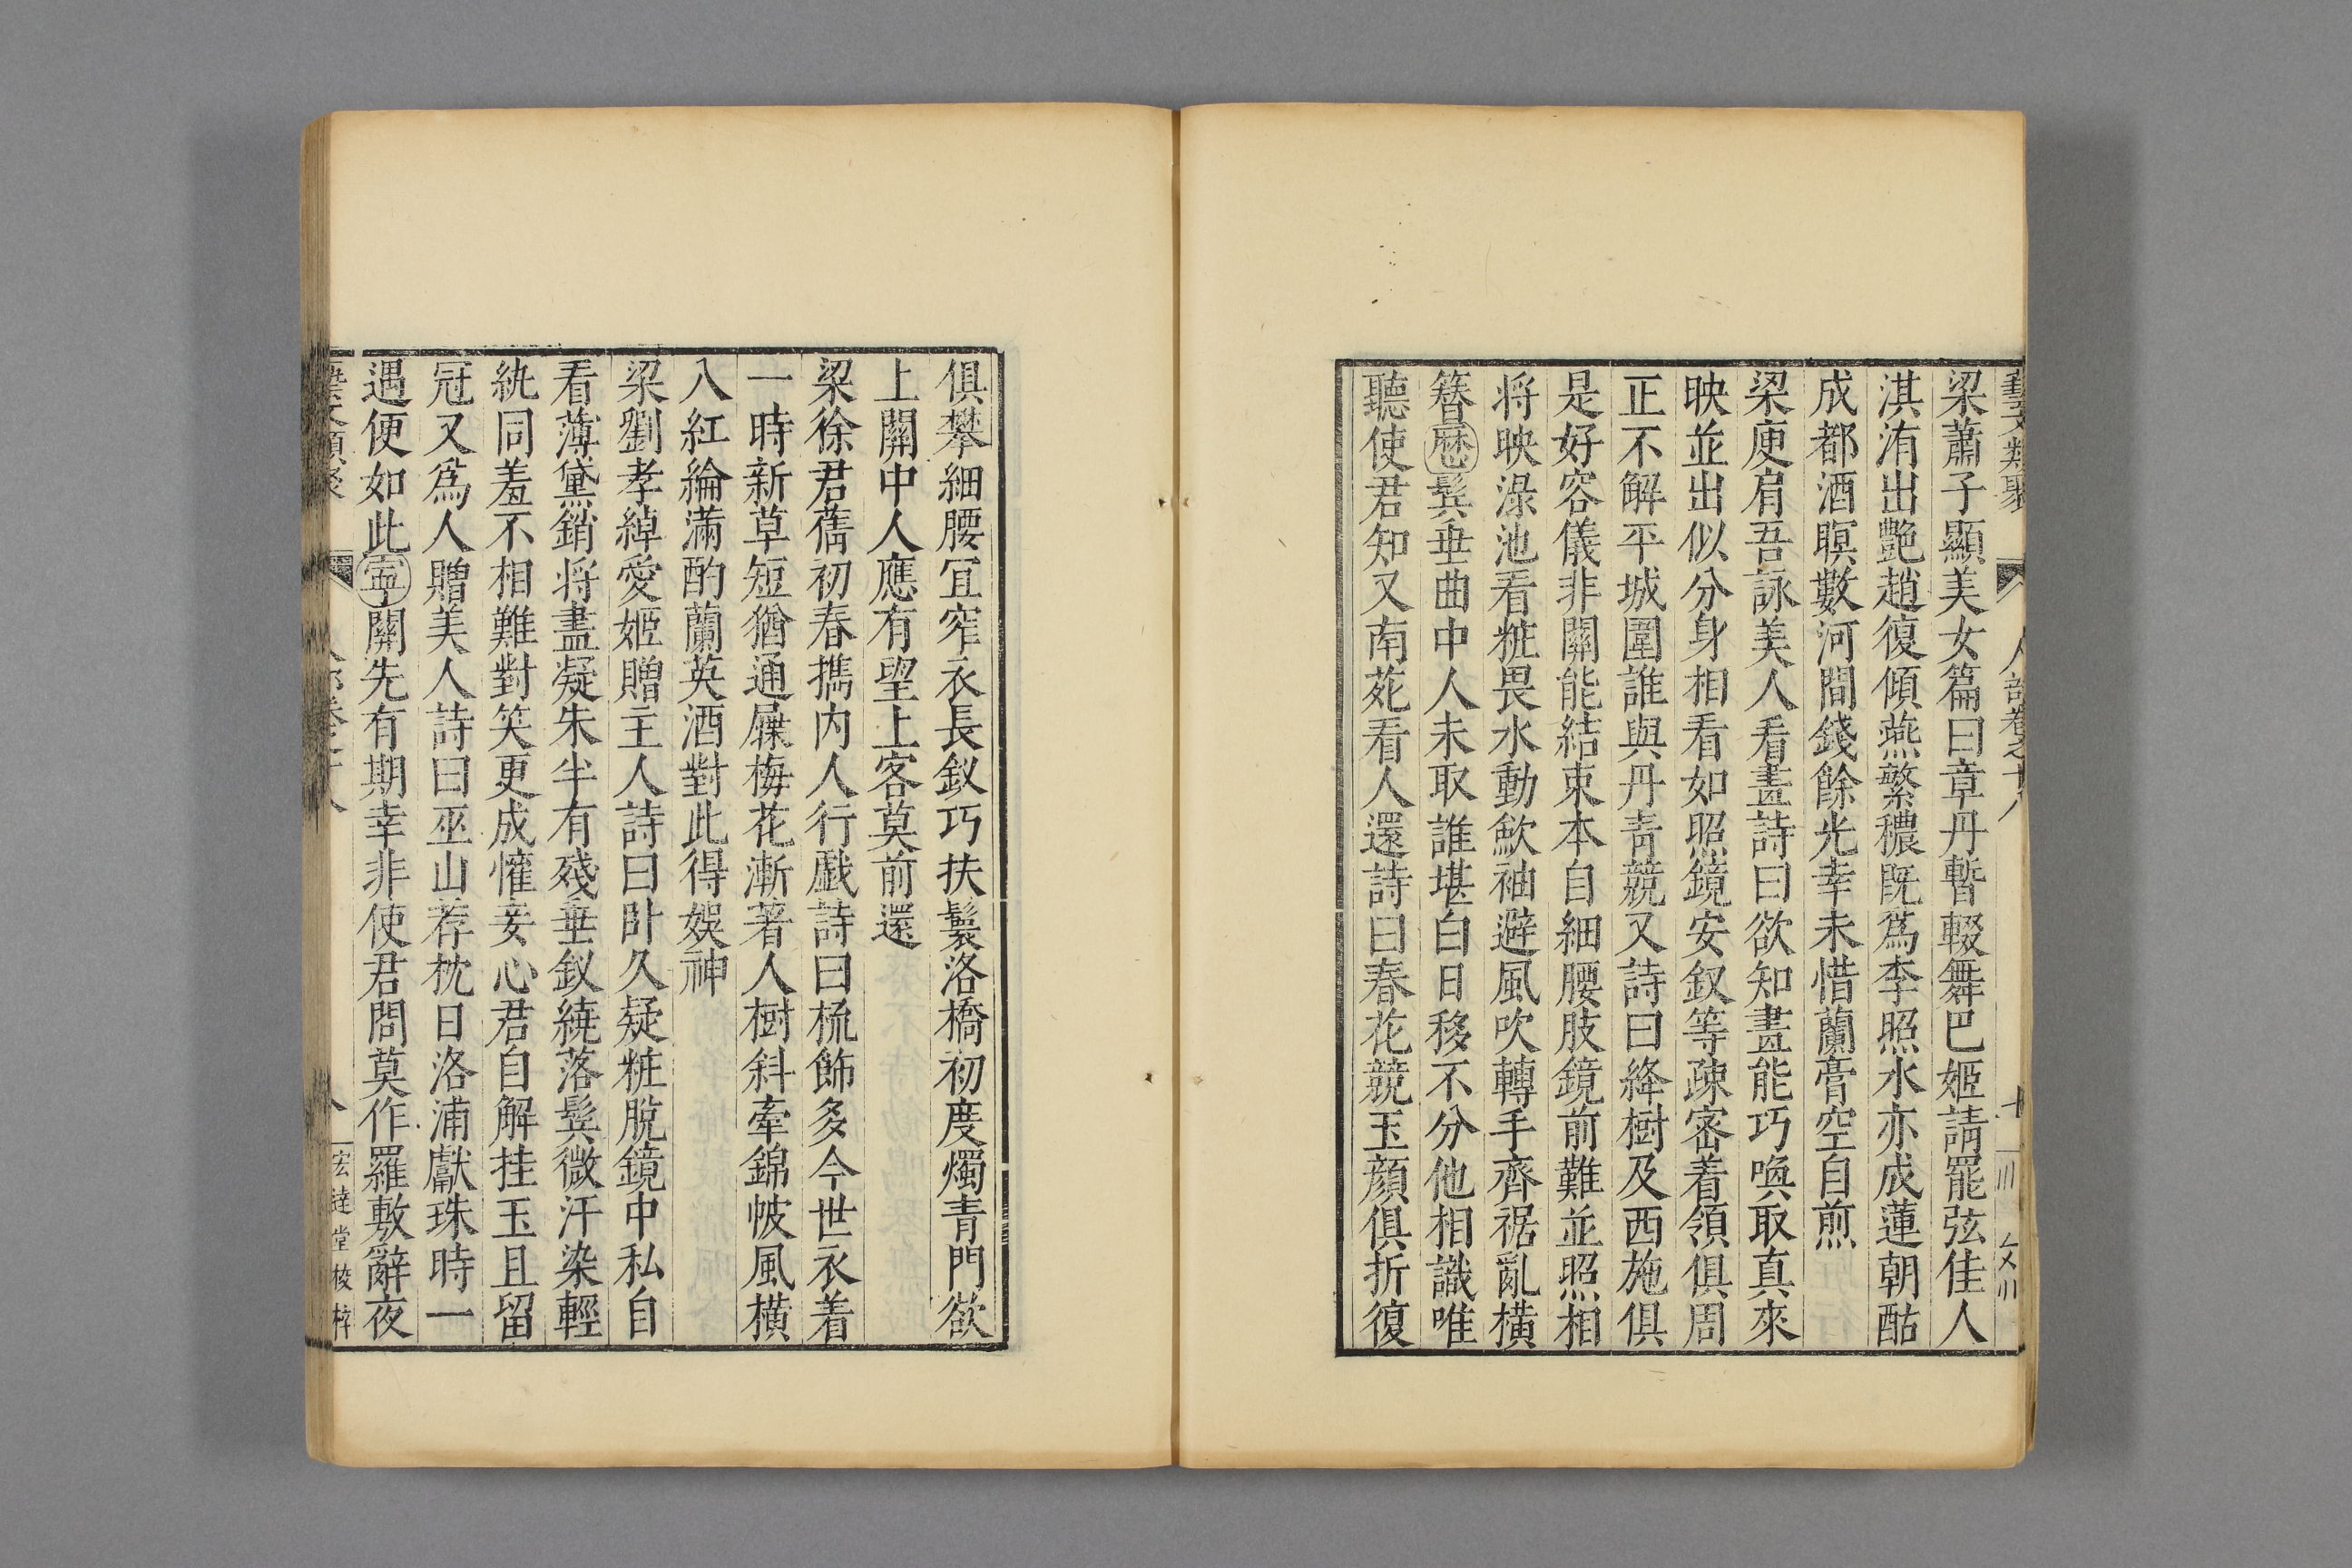 藝文類聚 人部卷之十八
梁蕭子顯美女篇曰章丹暫輟舞巴姬請罷弦佳人
淇洧出艶趙復傾燕繁穠既爲李照水亦成蓮朝酤
成都酒暝數河間錢餘光幸未惜蘭膏空自煎
梁庾肩吾詠美人看畫詩曰欲知畫能巧喚取真來
映並出似分身相看如照鏡安釵等疎密着領俱周
正不解平城圍誰與丹青競又詩曰絳樹及西施俱
是好容儀非關能結束本自細腰肢鏡前難並照相
将映渌池看粧畏水動歛袖避風吹轉手齊裾亂橫
簪歷鬂垂曲中人未取誰堪白日移不分他相識唯
聽使君知又南苑看人還詩曰春花競玉顔俱折復
俱攀細腰冝窄衣長釵巧扶鬟洛橋初度燭青門欲
上關中人應有望上客莫前還
梁徐君蒨初春擕内人行戲詩曰梳飾多今世衣着
一時新草短猶通屧梅花漸著人樹斜牽錦帔風橫
入紅綸滿酌蘭英酒對此得娛神
梁劉孝綽愛姬贈主人詩曰卧久疑粧脫鏡中私自
看薄黛銷将盡凝朱半有殘垂釵繞落鬂微汗染輕
紈同羞不相難對笑更成懽妾心君自解挂玉且留
冠又爲人贈美人詩曰巫山荐枕日洛浦獻珠時一
遇便如此寧關先有期幸非使君問莫作羅敷辭夜
宏達堂校梓